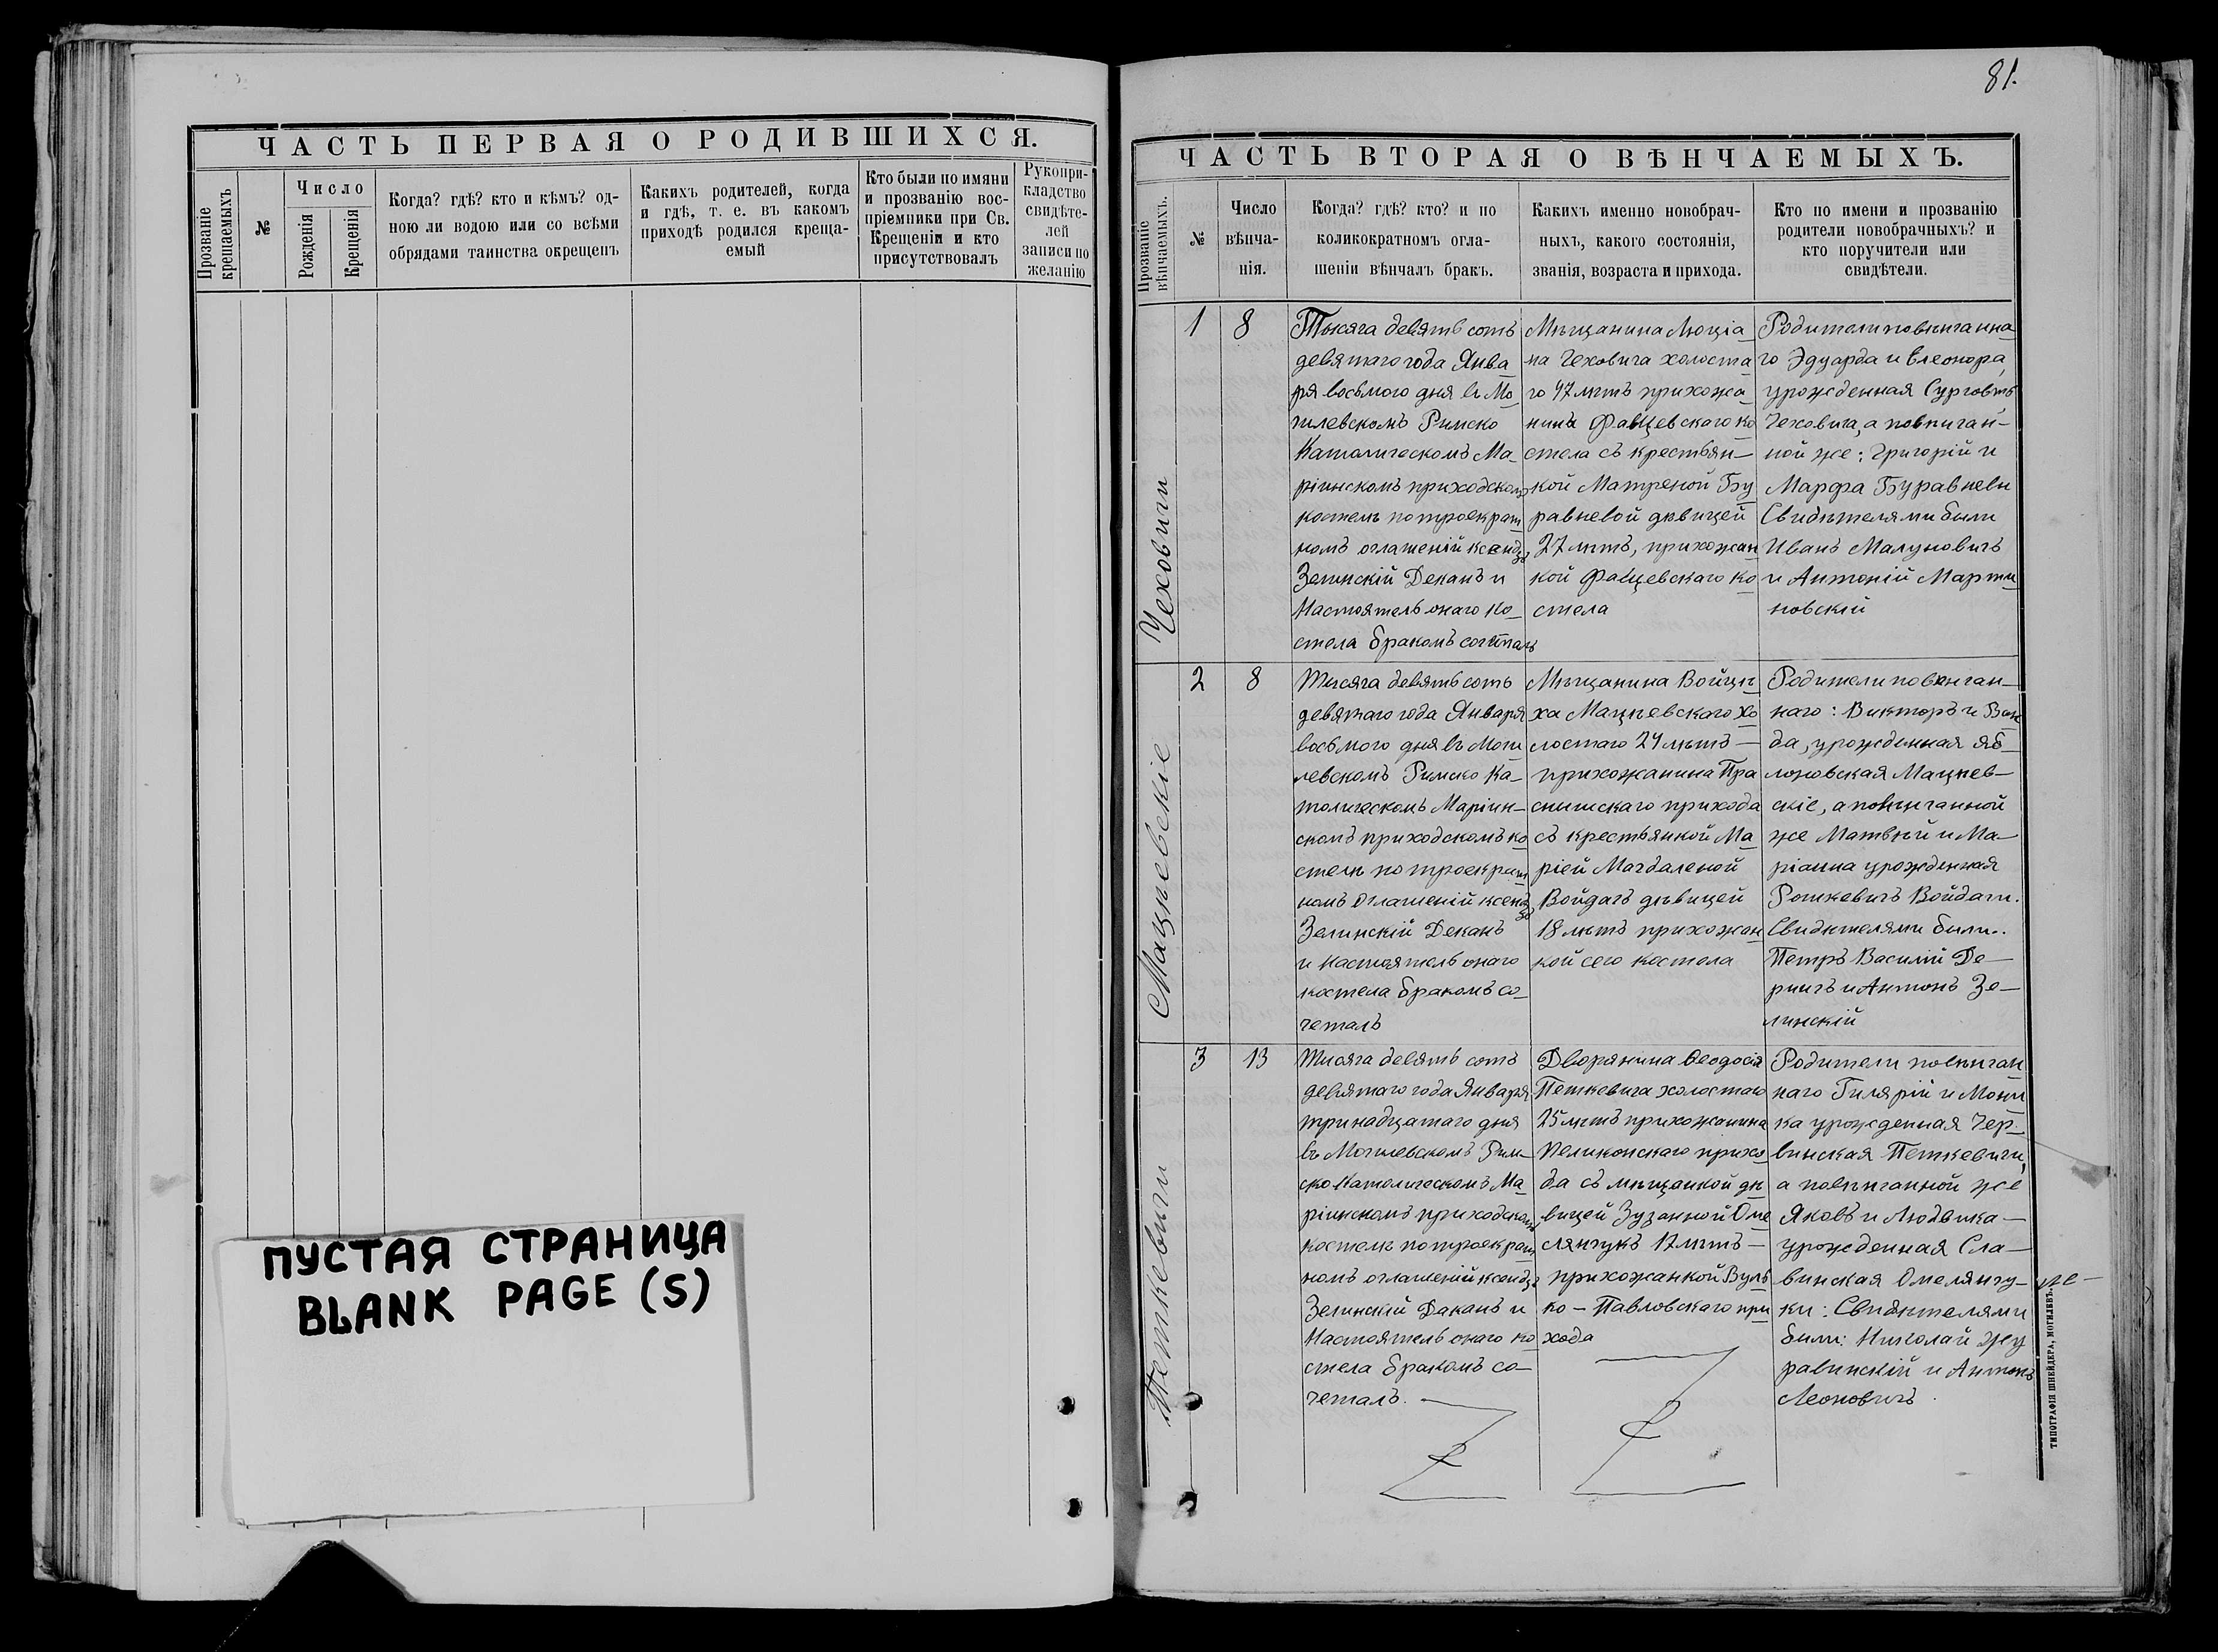 ЧАСТЬ ПЕРВАЯ О РОДИВШИХСЯ.
Прозваніе крещаемыхъ
№
Число
Рожденія
Крещенія
Когда? гдѣ? кто и кѣмъ? од-
ною ли водою или со всѣми
обрядами таинства окрещенъ
Какихъ родителей, когда
и гдѣ, т. е. въ какомъ
приходѣ родился креща-
емый
Кто были по имяни
и прозванію вос-
пріемники при Св.
Крещеніи и кто
присутствовалъ
Рукопри-
кладство
свидѣте-
лей
записи по
желанію
ПУСТАЯ СТРАНИЦА
BLANK PAGE (S)
81.
ЧАСТЬ ВТОРАЯ О ВѢНЧАЕМЫХЪ.
Прозваніе вѣнчаемыхъ.
№
Число
вѣнча-
нія.
Когда? гдѣ? кто? и по
коликократномъ огла-
шеніи вѣнчалъ бракъ.
Какихъ именно новобрач-
ныхъ, какого состоянія,
званія, возраста и прихода.
Кто по имени и прозванію
родители новобрачныхъ? и
кто поручители или
свидѣтели.
Чеховичи
1
8
Тысяча девять сотъ
девятаго года Янва
ря восьмого дня въ Мо
гилевскомъ Римско
Католическомъ Ма-
ріинскомъ приходскомъ
костелѣ по троекрат
номъ оглашеній ксендзъ
Зелинскій Деканъ и
Настоятель онаго Ко-
стела бракомъ сочеталъ
Мѣщанина Люціа
на Чеховича холоста
го 47 лѣтъ прихожа
нина Фащевского ко
стела съ крестьян-
кой Матреной Бу
равневой дѣвицей
27 лѣтъ, прихожан
кой Фащевскаго ко
стела
Родители повѣнчанна
го Эдуарда и Елеонора,
урожденная Сурговтъ
Чеховича, а повѣнчан-
ной же: Григорій и
Марфа Буравневы
Свидѣтелями были
Иванъ Малуновичъ
и Антоній Марти
новскій
Мацѣевскіе
2
8
Тысяча девять сотъ
девятаго года Января
восьмого дня въ Моги
левскомъ Римско Ка-
толическомъ Маріин-
скомъ приходскомъ ко
стелѣ по троекрат
номъ оглашеній ксендзъ
Зелинскій Деканъ
и Настоятель онаго
костела бракомъ со-
четалъ
Мѣщанина Войцѣ
ха Мацѣевскаго хо
лостаго 24 лѣтъ-
прихожанина Пра
снишскаго прихода
съ крестьянкой Ма
ріей Магдаленой
Войдагъ дѣвицей
18 лѣтъ прихожан
кой сего костела
Родители повѣнчан-
наго: Викторъ и Ван
да, урожденная Яб-
лоновская Мацѣев-
скіе, а повѣнчанной
же Матвѣй и Ма-
ріанна урожденная
Рошкевичъ Войдаги.
Свидѣтелями были..
Петръ Василій Де-
рингъ и Антонъ Зе-
линскій
Петкевичи
3
13
Тысяча девять сотъ
девятаго года Января
тринадцатаго дня
въ Могилевскомъ Рим-
ско Католическомъ Ма
ріинскомъ приходскомъ
костелѣ по троекрат
номъ оглашеній ксендзъ
Зелинскій Деканъ и
Настоятель онаго ко
стела бракомъ со-
четалъ.
Дворянина Ѳеодосія
Петкевича холостаго
25 лѣтъ прихожанина
Пеликонскаго прихо
да съ мѣщанкой дѣ
вицей Зузанной Оме
лянчукъ 17 лѣтъ-
прихожанкой Вуль
ко-Павловскаго при
хода
Родители повѣнчан
наго Гилярій и Мони
ка урожденная Чер
винская Петкевичи,
а повѣнчанной же
Яковъ и Людвика-
урожденная Сла-
винская Омелянчу-
ки: Свидѣтелями
были: Николай Жу
равинскій и Антонъ
Леоновичъ
ТИПОГРАФІЯ ШНЕЙДЕРА, МОГИЛЕВЪ.